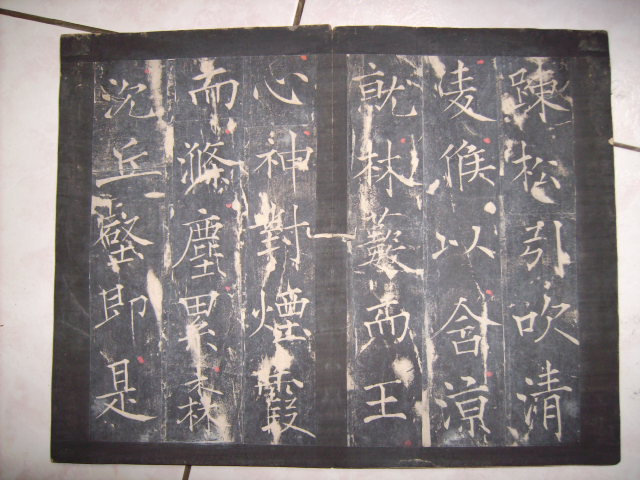 踈松引吹清
麦候以含涼
就林藪而王
心神對煙霞
而滌塵累森
沈丘壑即是